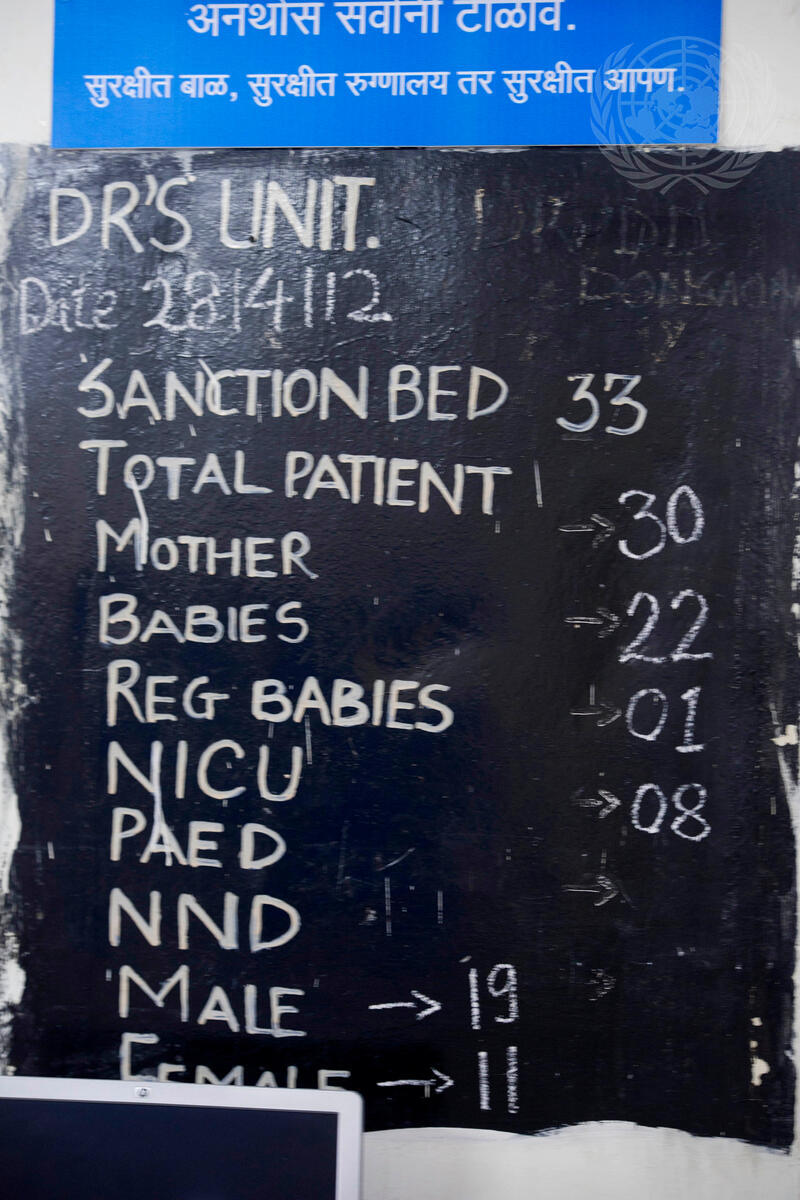 अनर्थास सर्वांनी टाळावे.
सुरक्षीत बाळ, सुरक्षीत रुग्णालय तर सुरक्षीत आपण.
DR'S UNIT.
Date 28/4/12
SANCTION BED 33
TOTAL PATIENT
→ 30
MOTHER
BABIES → 22
REG BABIES → 01
NICU
→ 08
PAED
→
NND
MALE → 19 →
FEMALE → 11
hp